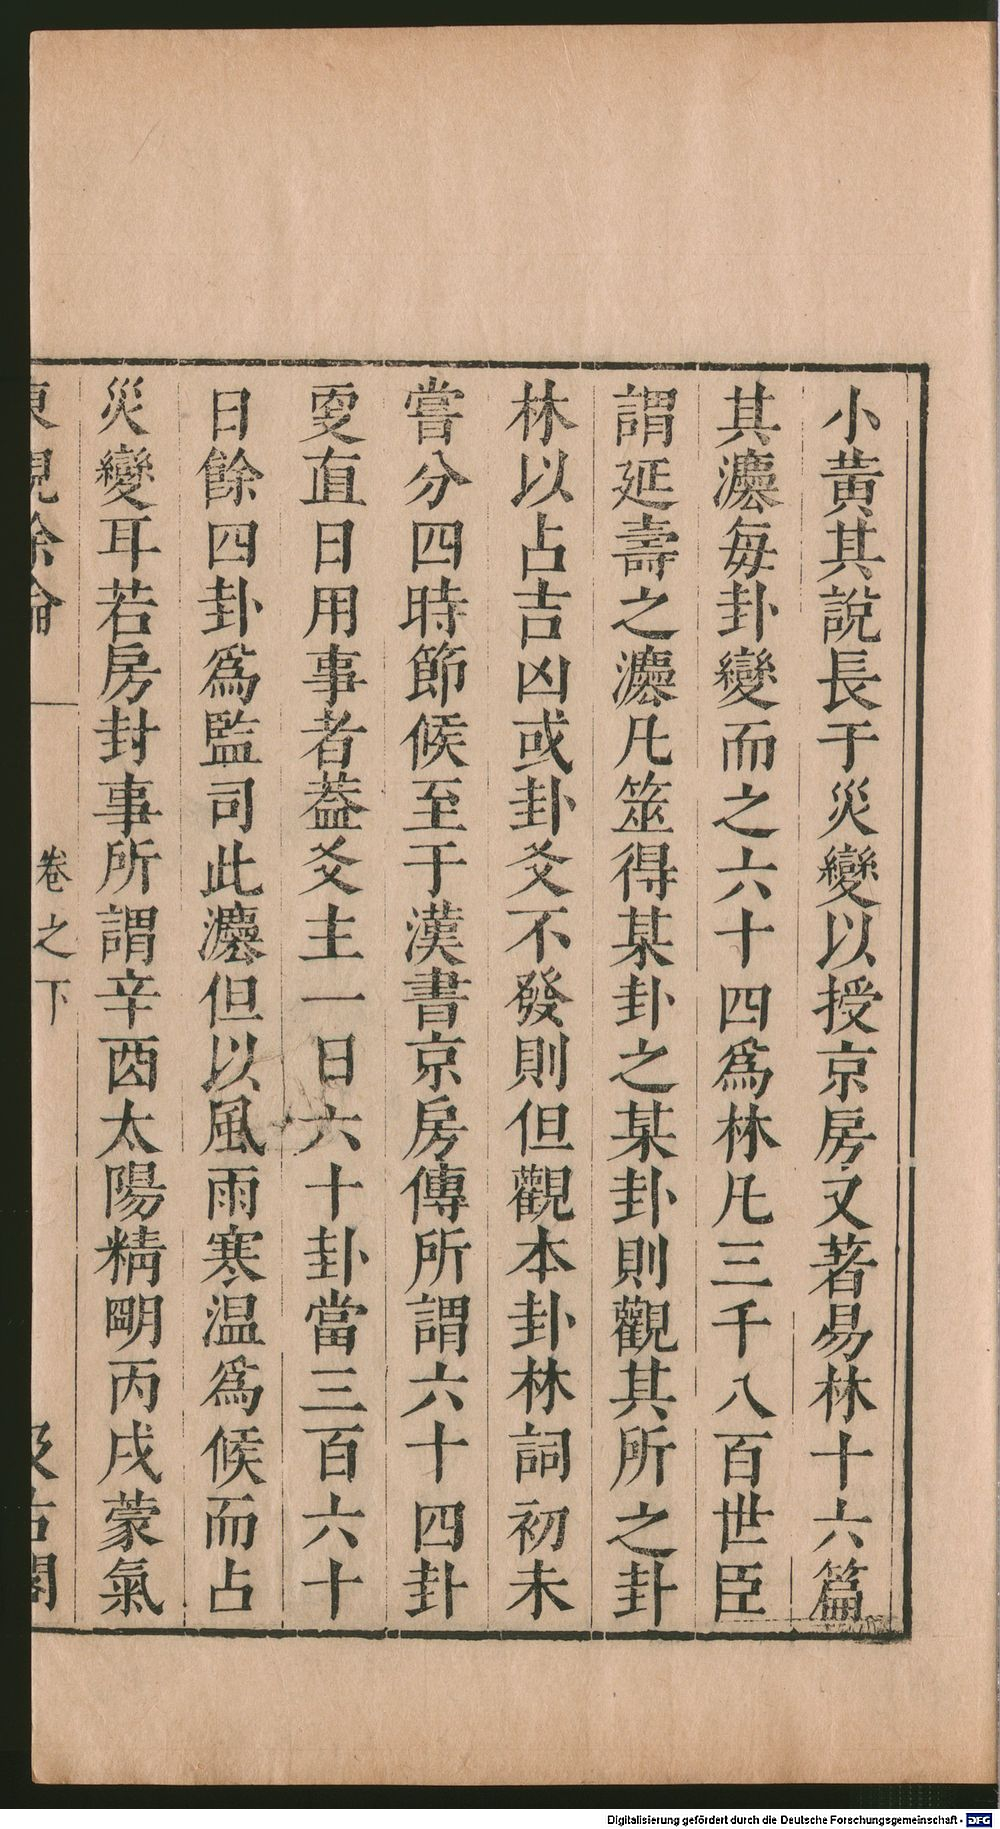 小黄其說長于災變以授京房又著易林十六篇
其灋每卦變而之六十四爲林凡三千八百世臣
謂延壽之灋凡筮得某卦之某卦則觀其所之卦
林以占吉凶或卦爻不發則但觀本卦林詞初未
嘗分四時節候至于漢書京房傳所謂六十四卦
更直日用事者葢爻主一日六十卦當三百六十
日餘四卦爲監司此灋但以風雨寒温爲候而占
災變耳若房封事所謂辛酉太陽精明丙戌蒙氣
東觀餘論
卷之下
汲古閣
Digitalisierung gefördert durch die Deutsche Forschungsgemeinschaft - DFG